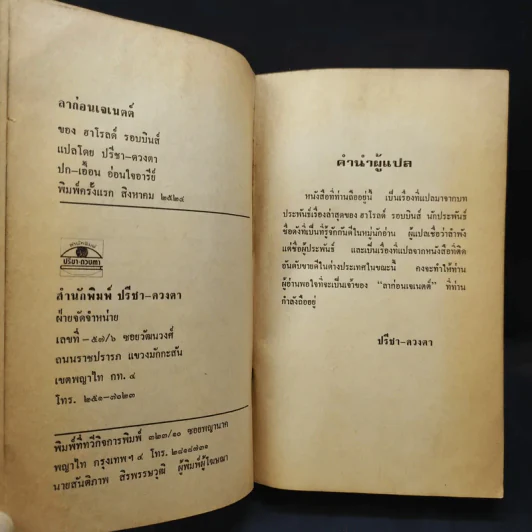 ลาก่อนเจเนตต์
ของ ฮาโรลด์ รอบบินส์
แปลโดย ปรีชา-ดวงตา
ปก-เอื้อน อ่อนใจอารีย์
พิมพ์ครั้งแรก สิงหาคม ๒๕๒๔
ปรีชา-ดวงตา
สำนักพิมพ์ ปรีชา-ดวงตา
ฝ่ายจัดจำหน่าย
เลขที่ - ๕๗/๖ ซอยวัฒนวงศ์
ถนนราชปรารภ แขวงมักกะสัน
เขตพญาไท กท. ๔
โทร. ๒๕๑-๗๐๒๓
พิมพ์ที่ทวีกิจการพิมพ์ ๓๒๓/๑๐ ซอยพญานาค
พญาไท กรุงเทพฯ ๔ โทร. ๒๘๑๔๗๓๑
นายสันติภาพ สิรพรรษวุฒิ ผู้พิมพ์ผู้โฆษณา
คำนำผู้แปล
หนังสือที่ท่านถืออยู่นี้ เป็นเรื่องที่แปลมาจากบท
ประพันธ์เรื่องล่าสุดของ ฮาโรลด์ รอบบินส์ นักประพันธ์
ชื่อดังที่เป็นที่รู้จักกันดีในหมู่นักอ่าน ผู้แปลเชื่อว่าลำพัง
แต่ชื่อผู้ประพันธ์ และเป็นเรื่องที่แปลจากหนังสือที่ติด
อันดับขายดีในต่างประเทศในขณะนี้ คงจะทำให้ท่าน
ผู้อ่านพอใจที่จะเป็นเจ้าของ “ลาก่อนเจเนตต์” ที่ท่าน
กำลังถืออยู่
ปรีชา-ดวงตา